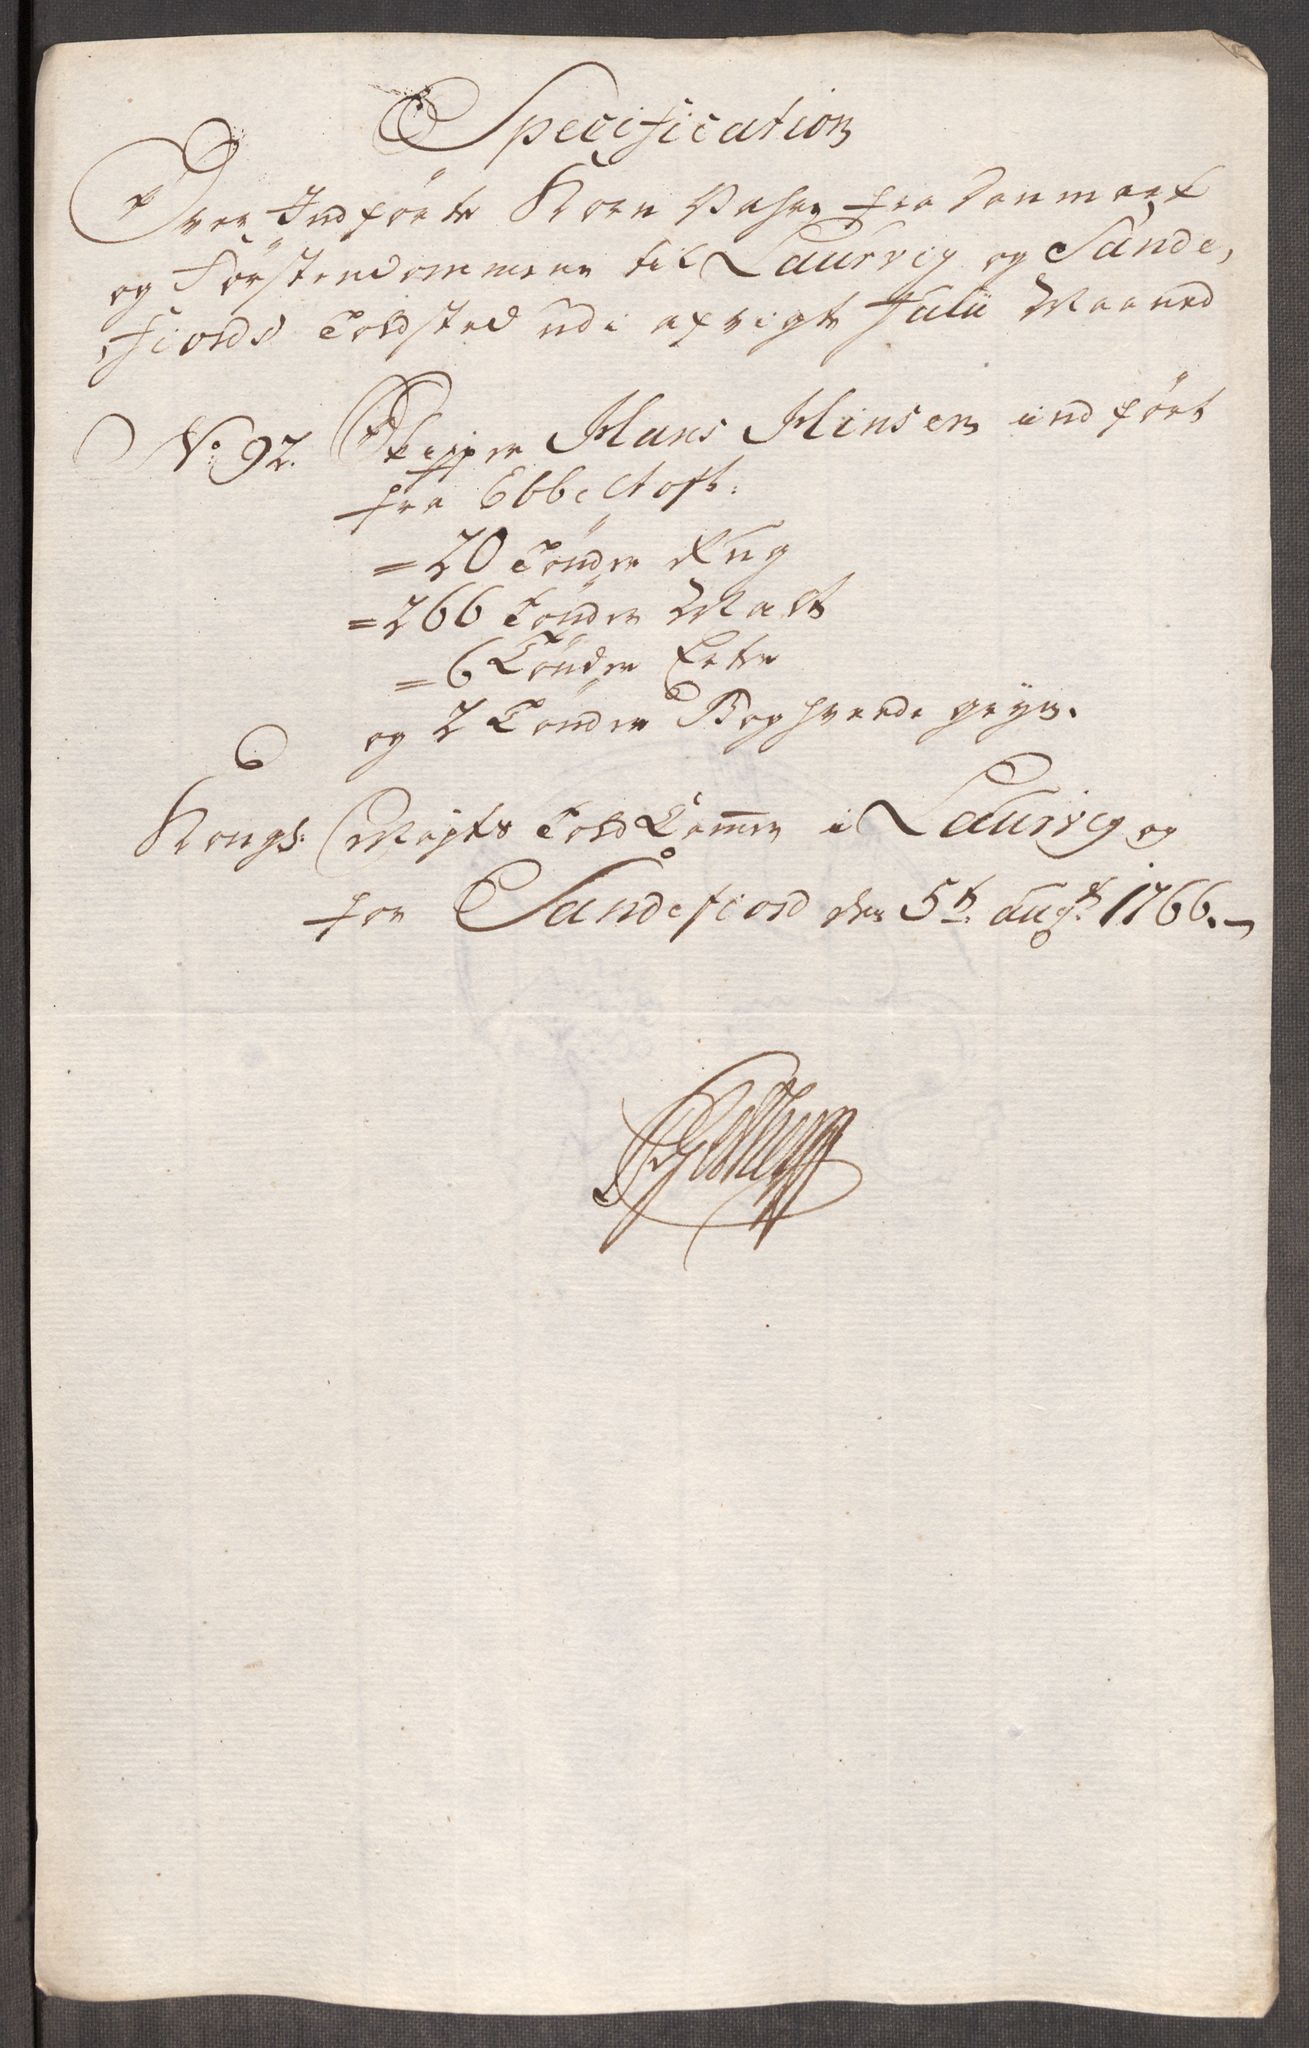 Specification
Over Indførte Korn Vahre fra Danmark
og Førstendommene til Laurvig og Sande,
fiords Toldsted udi afvigte Julii Maaned
No: 92. Skipper Hans Hinsen indført
fra Ebbeltoft:
= 20 Tønder Rug
= 266 Tønder Malt
= 6 Tønder Erter
og 2 Tønder Boghvede gryn.
Kongs: Mayts Told Cammer i Laurvig og
for Sandefiord den 5te: augti: 1766.